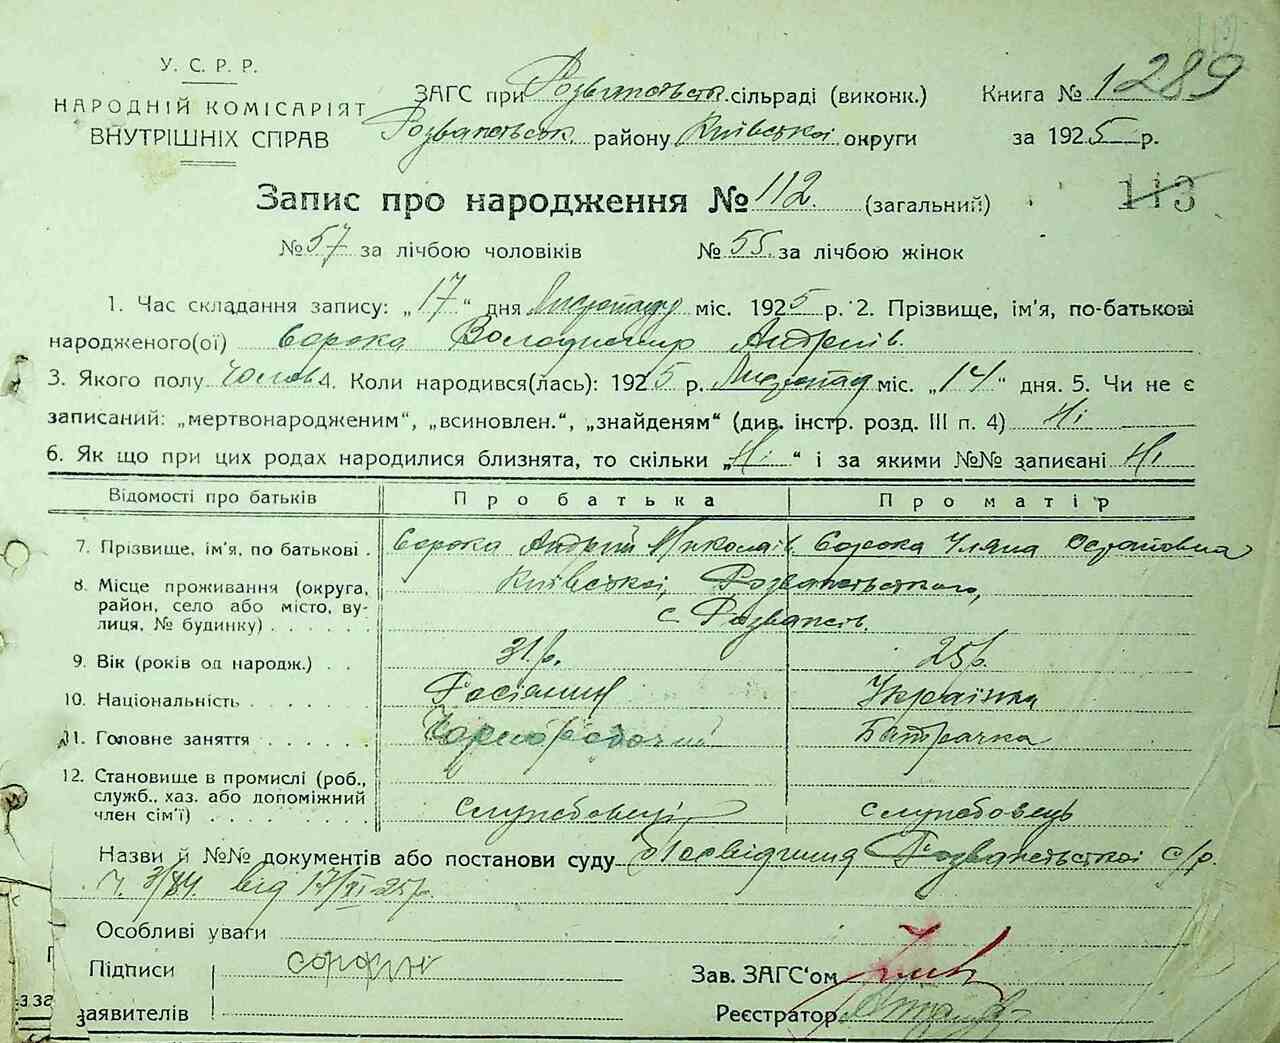 У. С. Р. Р.
НАРОДНІЙ КОМІСАРІЯТ
ВНУТРІШНІХ СПРАВ
ЗАГС при Розважевськ. сільраді (виконк.)
Розважівськ. району Київської округи
Книга № 1 289
за 1925 р.
Запис про народження № 112. (загальний)
113
№ 57 за лічбою чоловіків № 55. за лічбою жінок
1. Час складання запису: „17“ дня Листопаду міс. 1925 р. 2. Прізвище, ім'я, по-батькові
народженого(ої) Сорока Володимир Андріїв.
3. Якого полу Чолов 4. Коли народився(лась): 1925 р. Листопад міс. „14“ дня. 5. Чи не є
записаний: „мертвонародженим“, „всиновлен.“, „знайденям“ (див. інстр. розд. III п. 4) Ні
6. Як що при цих родах народилися близнята, то скільки „Ні“ і за якими №№ записані Ні
Відомості про батьків Про батька Про матір
7. Прізвище, ім'я, по батькові . Сорока Андрій Миколаїв. Сорока Уляна Остаповна
8. Місце проживання (округа, район, село або місто, вулиця, № будинку) . . . . . Київської, Розважівського,
с. Розважів.
9. Вік (років од народж.) . . 31 р. 25 р.
10. Національність . . . . . Росіянин Українка
11. Головне заняття . . . . . . Чорноробочий Батрачка
12. Становище в промислі (роб., служб., хаз. або допоміжний член сім'ї) . . . . . . . . Службовець службовець
Назви й №№ документів або постанови суду Посвідчення Розважівської с/р.
ч. 3/84. від 17/XI-25 р.
Особливі уваги
Підписи
заявителів
Зав. ЗАГС'ом
Реєстратор